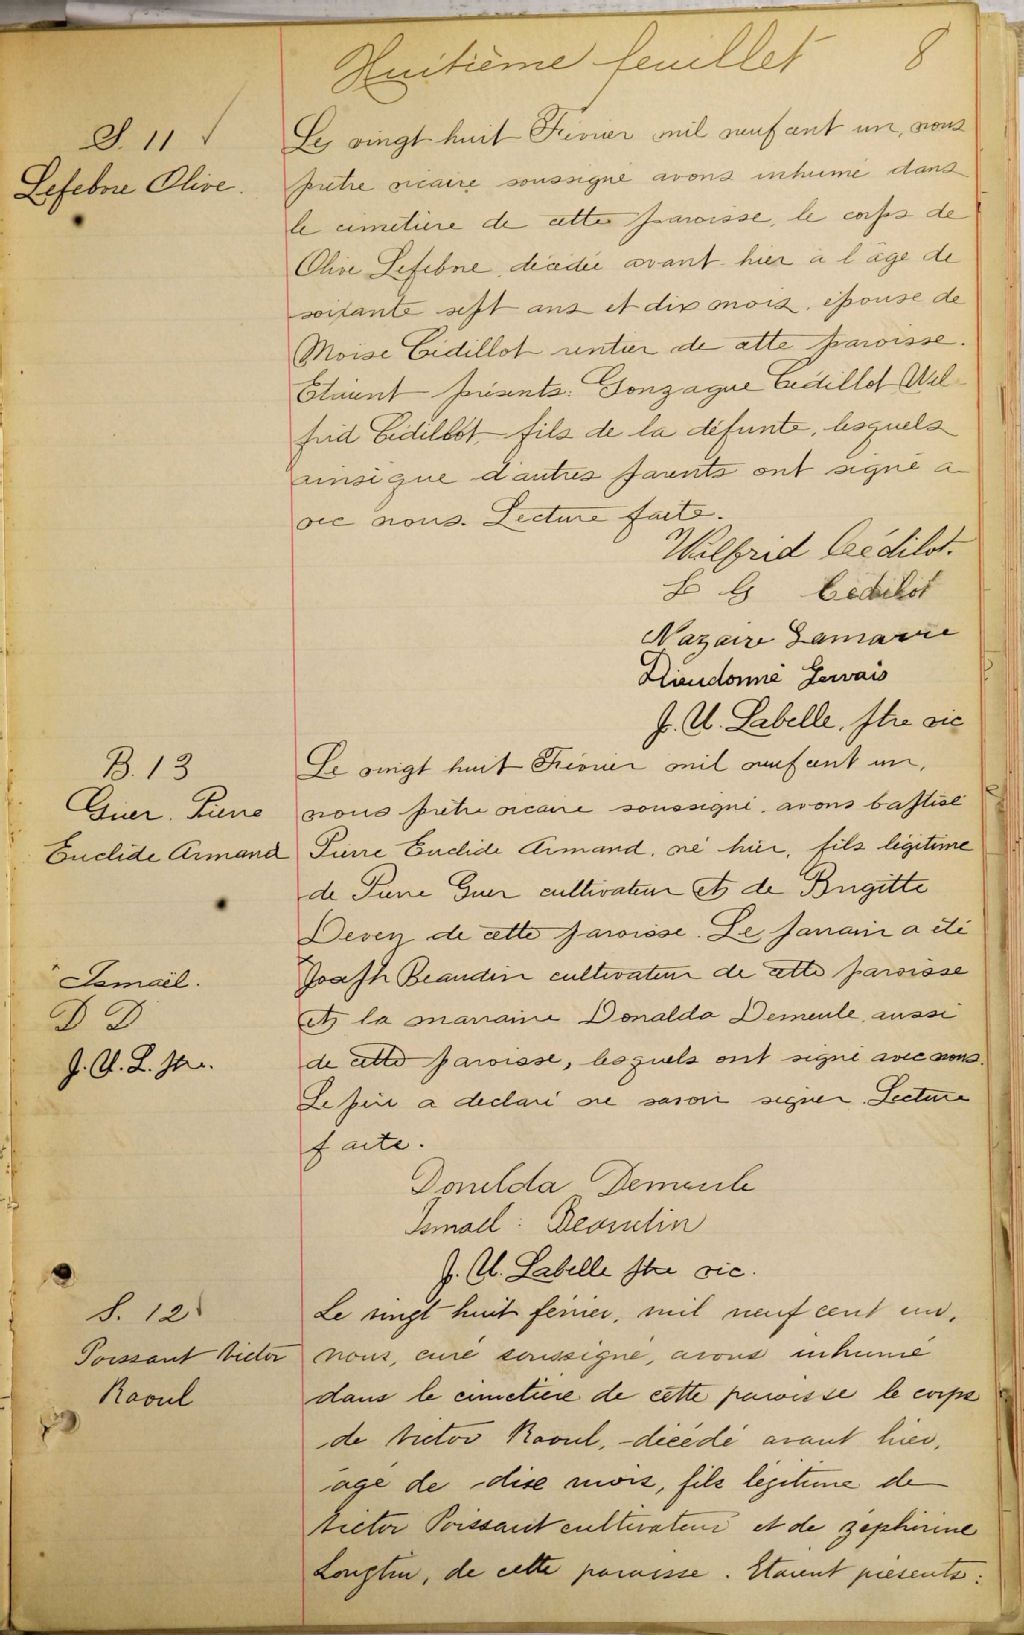 Huitième feuillet 8
S. 11
Lefebvre Olive.
Le vingt huit Février mil neuf cent un, nous
prêtre vicaire soussigné avons inhumé dans
le cimetière de cette paroisse, le corps de
Olive Lefebvre, décédée avant hier à l'âge de
soixante sept ans et dix mois, épouse de
Moise Cédillot rentier de cette paroisse.
Etaient présents: Gonzague Cédillot Wil
frid Cédillot, fils de la défunte, lesquels
ainsi que d'autres parents ont signé a
vec nous. Lecture faite.
Wilfrid Cédilot.
L G Cédilot
Nazaire Lamarre
Dieudonné Gervais
J. U. Labelle, ptre vic
B. 13
Guer. Pierre
Euclide Armand
Le vingt huit Février mil neuf cent un,
nous prêtre vicaire soussigné, avons baptisé
Pierre Euclide Armand, né hier, fils légitime
de Pierre Guer cultivateur et de Brigitte
Dever de cette paroisse. Le parrain a été
Joseph Beaudin cultivateur de cette paroisse
et la marraine Donalda Demeule, aussi
de cette paroisse, lesquels ont signé avec nous.
Le père a declaré ne savoir signer. Lecture
faite.
Ismaël.
D D
J. U. L. ptre.
Donelda Demeule
Ismael : Beaudin
J. U. Labelle ptre vic.
S. 12
Poissant Victor
Raoul
Le vingt huit février, mil neuf cent un,
nous, curé soussigné, avons inhumé
dans le cimetière de cette paroisse le corps
de Victor Raoul, décédé avant hier,
âgé de dix mois, fils légitime de
Victor Poissant cultivateur et de Zéphirine
Longtin, de cette paroisse. Etaient présents: